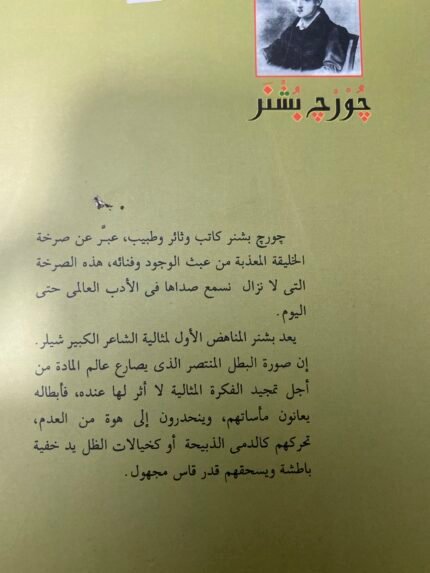 چُوْرْچ بُشْنَر
چورچ بشنر كاتب وثائر وطبيب، عبّر عن صرخة
الخليقة المعذبة من عبث الوجود وفنائه، هذه الصرخة
التى لا نزال نسمع صداها فى الأدب العالمى حتى
اليوم.
يعد بشنر المناهض الأول لمثالية الشاعر الكبير شيلر.
إن صورة البطل المنتصر الذى يصارع عالم المادة من
أجل تمجيد الفكرة المثالية لا أثر لها عنده، فأبطاله
يعانون مأساتهم، وينحدرون إلى هوة من العدم،
تحركهم كالدمى الذبيحة أو كخيالات الظل يد خفية
باطشة ويسحقهم قدر قاس مجهول.